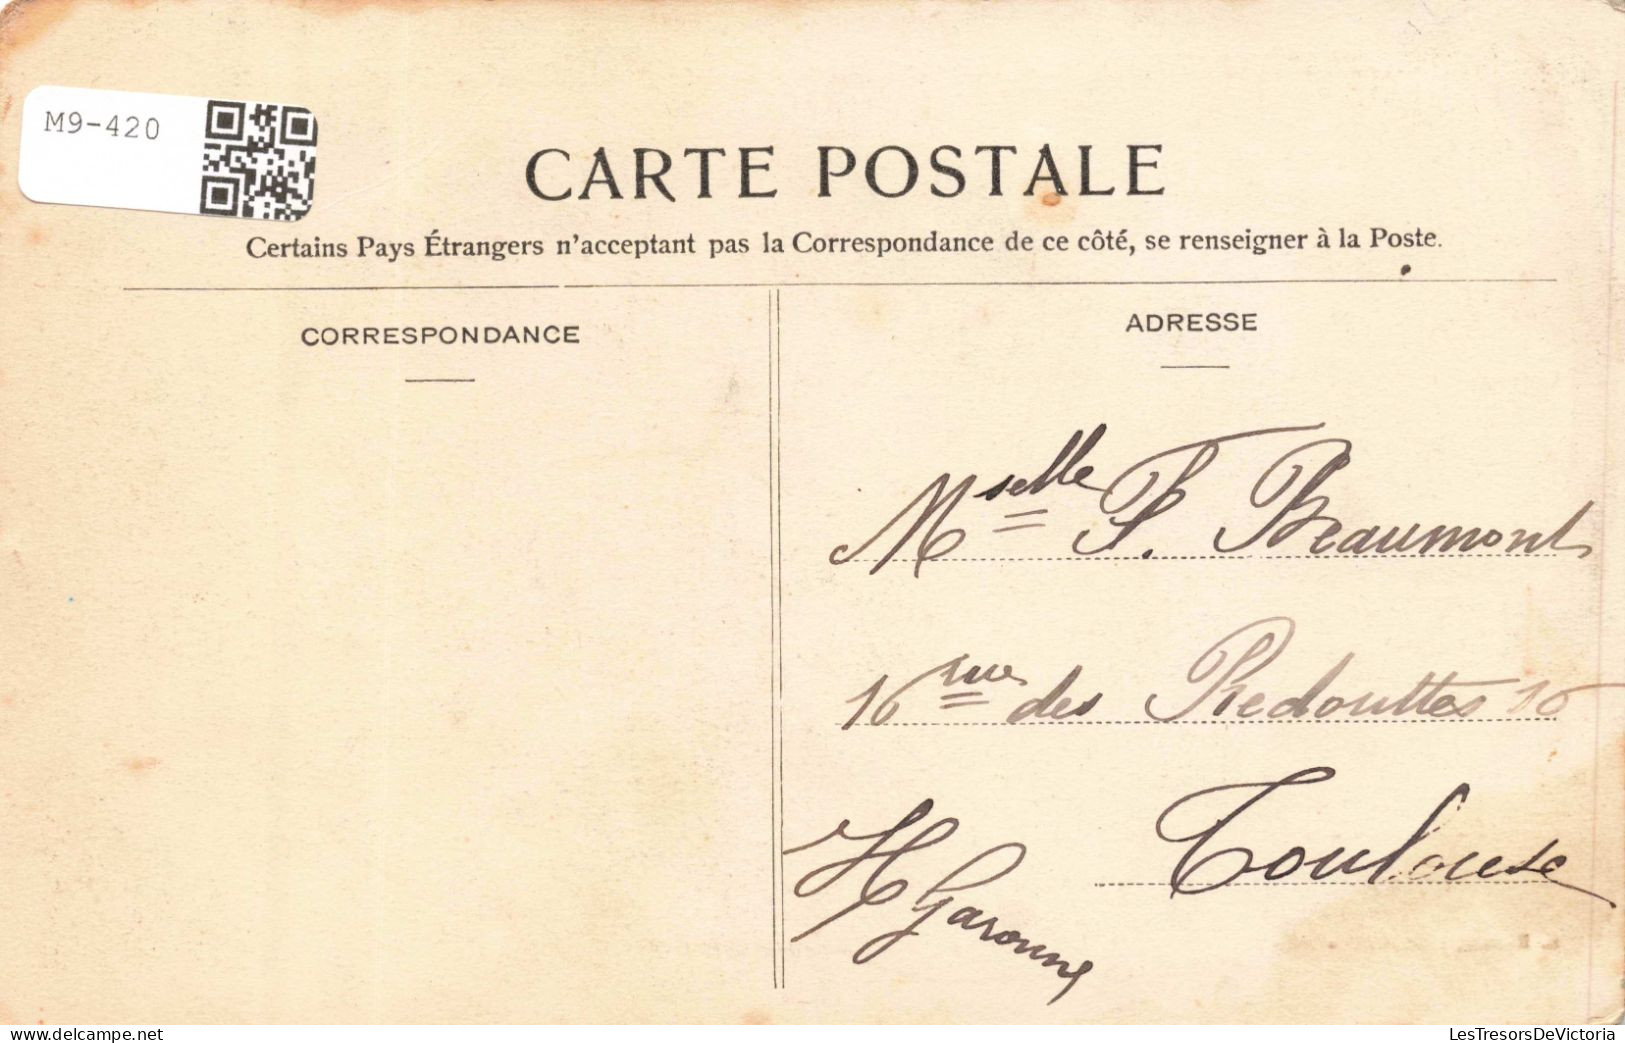 M9-420
CARTE POSTALE
Certains Pays Étrangers n'acceptant pas la Correspondance de ce côté, se renseigner à la Poste.
CORRESPONDANCE
ADRESSE
Mselle F. Beaumont
16 rue des Redouttes 16
Toulouse
H Garonne
delcampe.net
LesTresorsDeVictoria